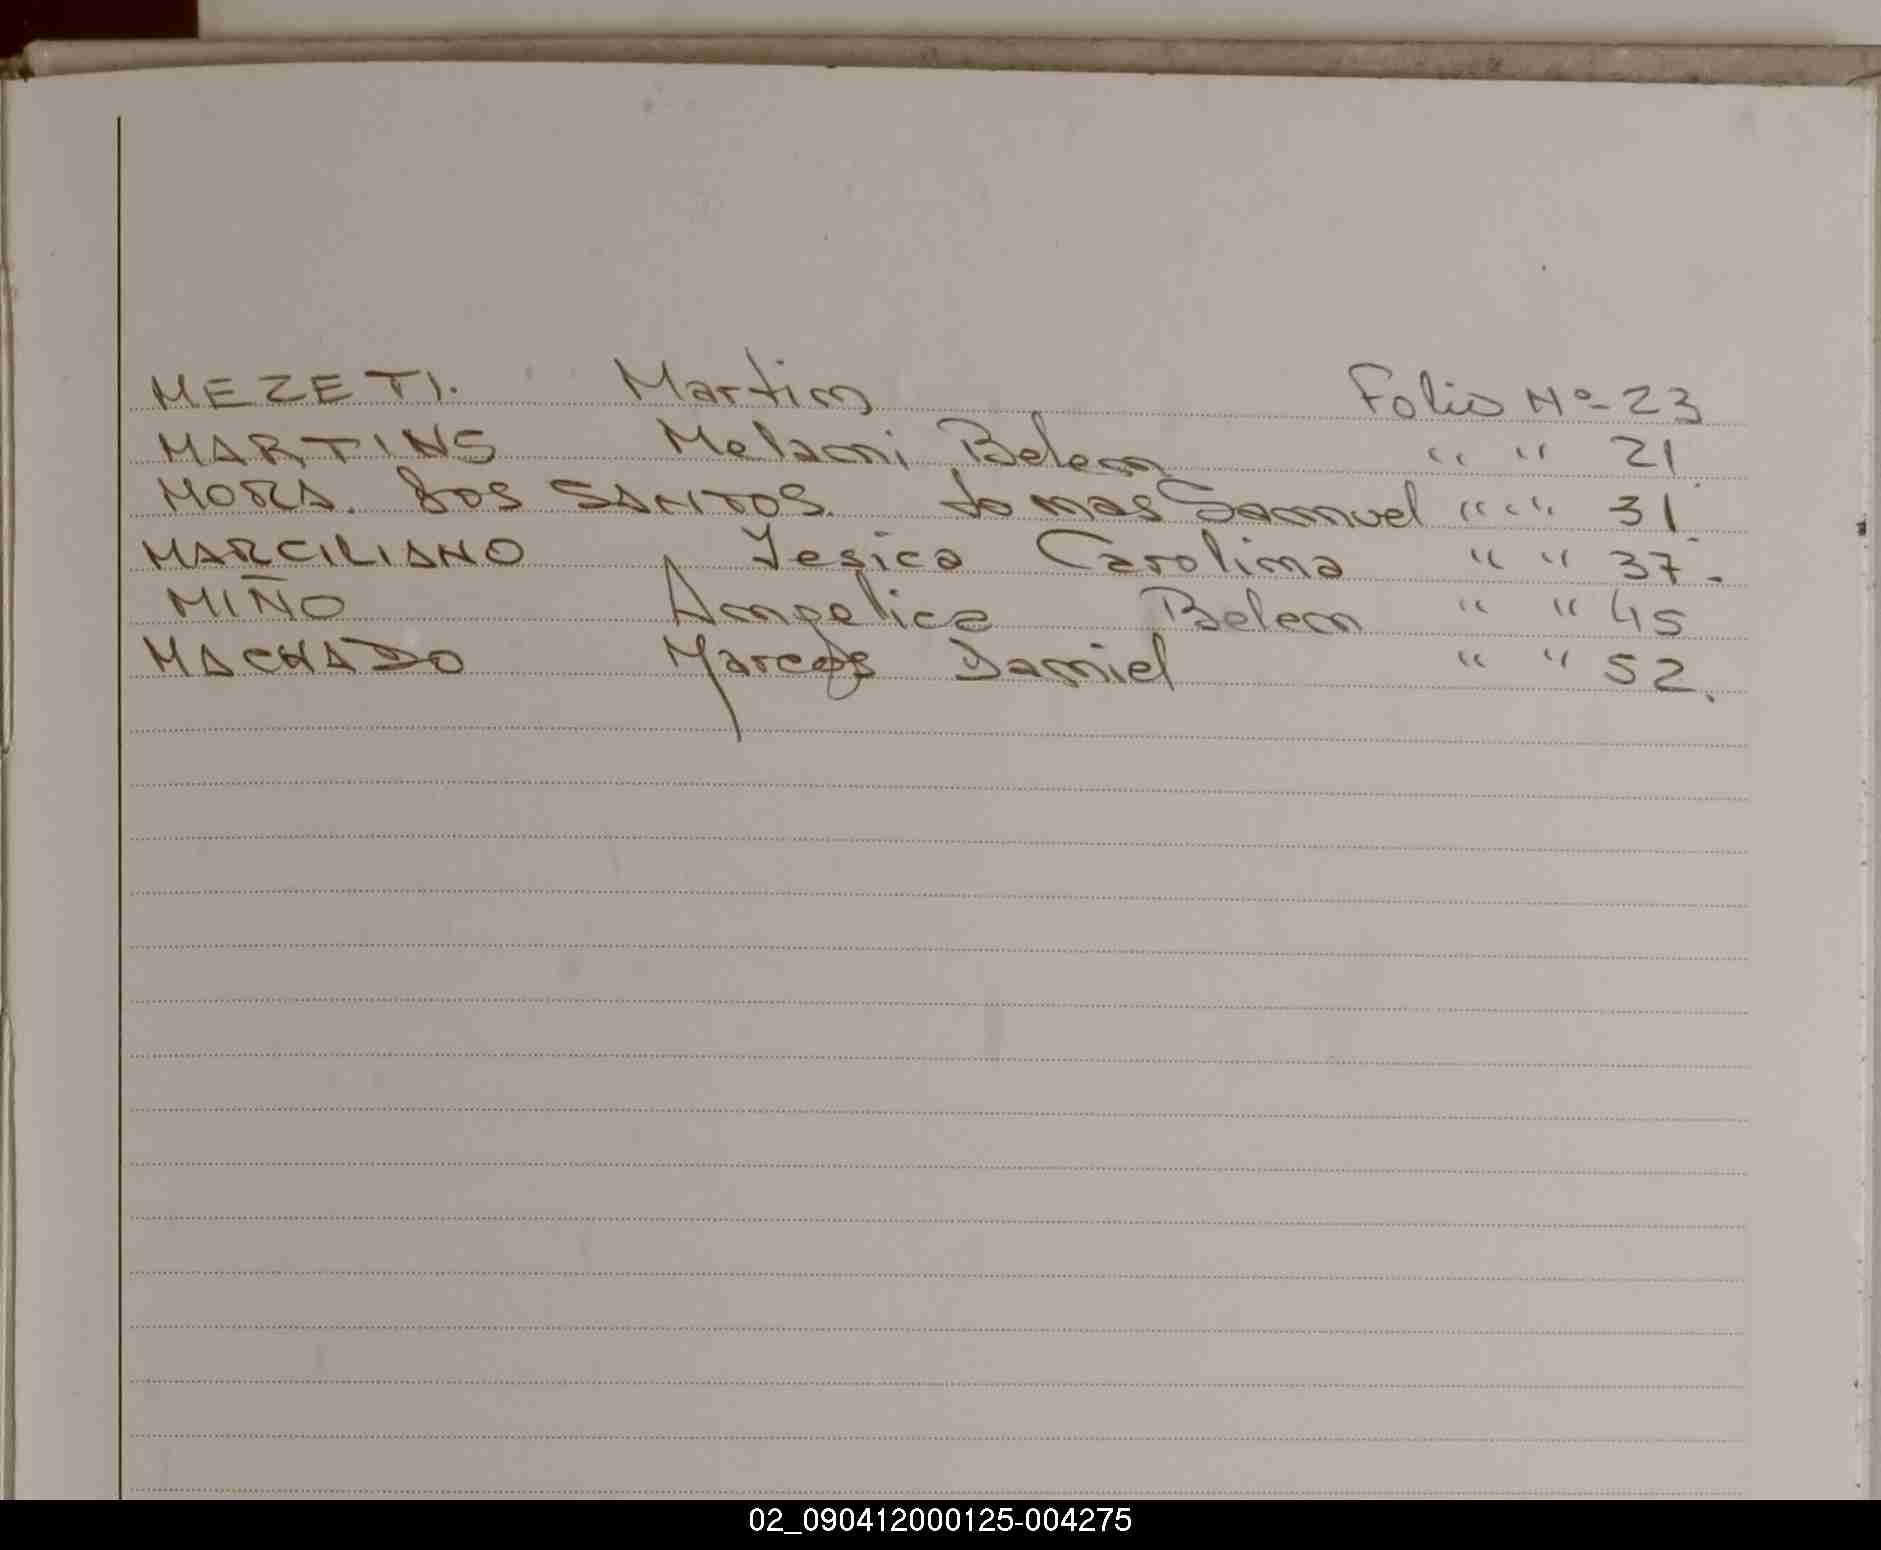 MEZETI. Martin Folio Nº 23
MARTINS Melani Belen " " 21
MORA. DOS SANTOS. Tomas Samuel " " 31
MARCILIANO Yesica Carolina " " 37.
MIÑO Angelica Belen " " 45
MACHADO Marcos Daniel " " 52.
02_090412000125-004275